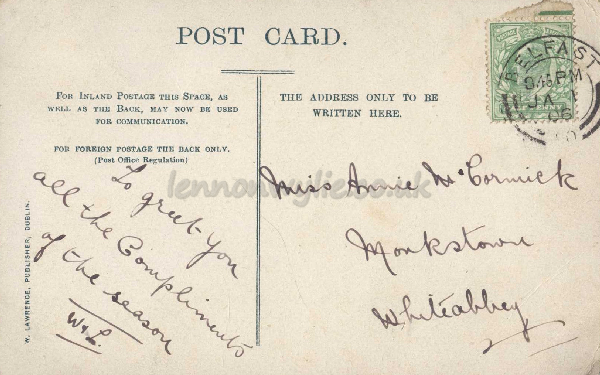 POST CARD.
FOR INLAND POSTAGE THIS SPACE, AS
WELL AS THE BACK, MAY NOW BE USED
FOR COMMUNICATION.
FOR FOREIGN POSTAGE THE BACK ONLY.
(Post Office Regulation)
THE ADDRESS ONLY TO BE
WRITTEN HERE.
BELFAST
8.45 PM
JA
06
lennonwylie.co.uk
To greet you
all the Compliments
of the season
W.L.
Miss Annie McCormick
Monkstown
Whiteabbey
W. LAWRENCE, PUBLISHER, DUBLIN.